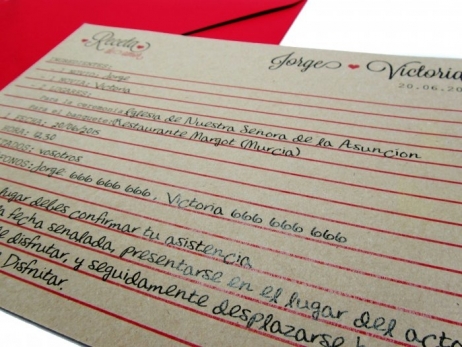 Receta
Jorge ❤ Victoria
20.06.20
INGREDIENTES:
1 NOVIO: Jorge
1 NOVIA: Victoria
2 LUGARES:
Para la ceremonia: Iglesia de Nuestra Senora de la Asuncion
Para el banquete: Restaurante Margot (Murcia)
1 FECHA: 20/06/2015
HORA: 12.30
INVITADOS: vosotros
FONOS: Jorge 666 666 666, Victoria 666 666 666
lugar debes confirmar tu asistencia
la fecha senalada, presentarse en el lugar del acto
e disfrutar, y seguidamente desplazarse
Disfrutar.